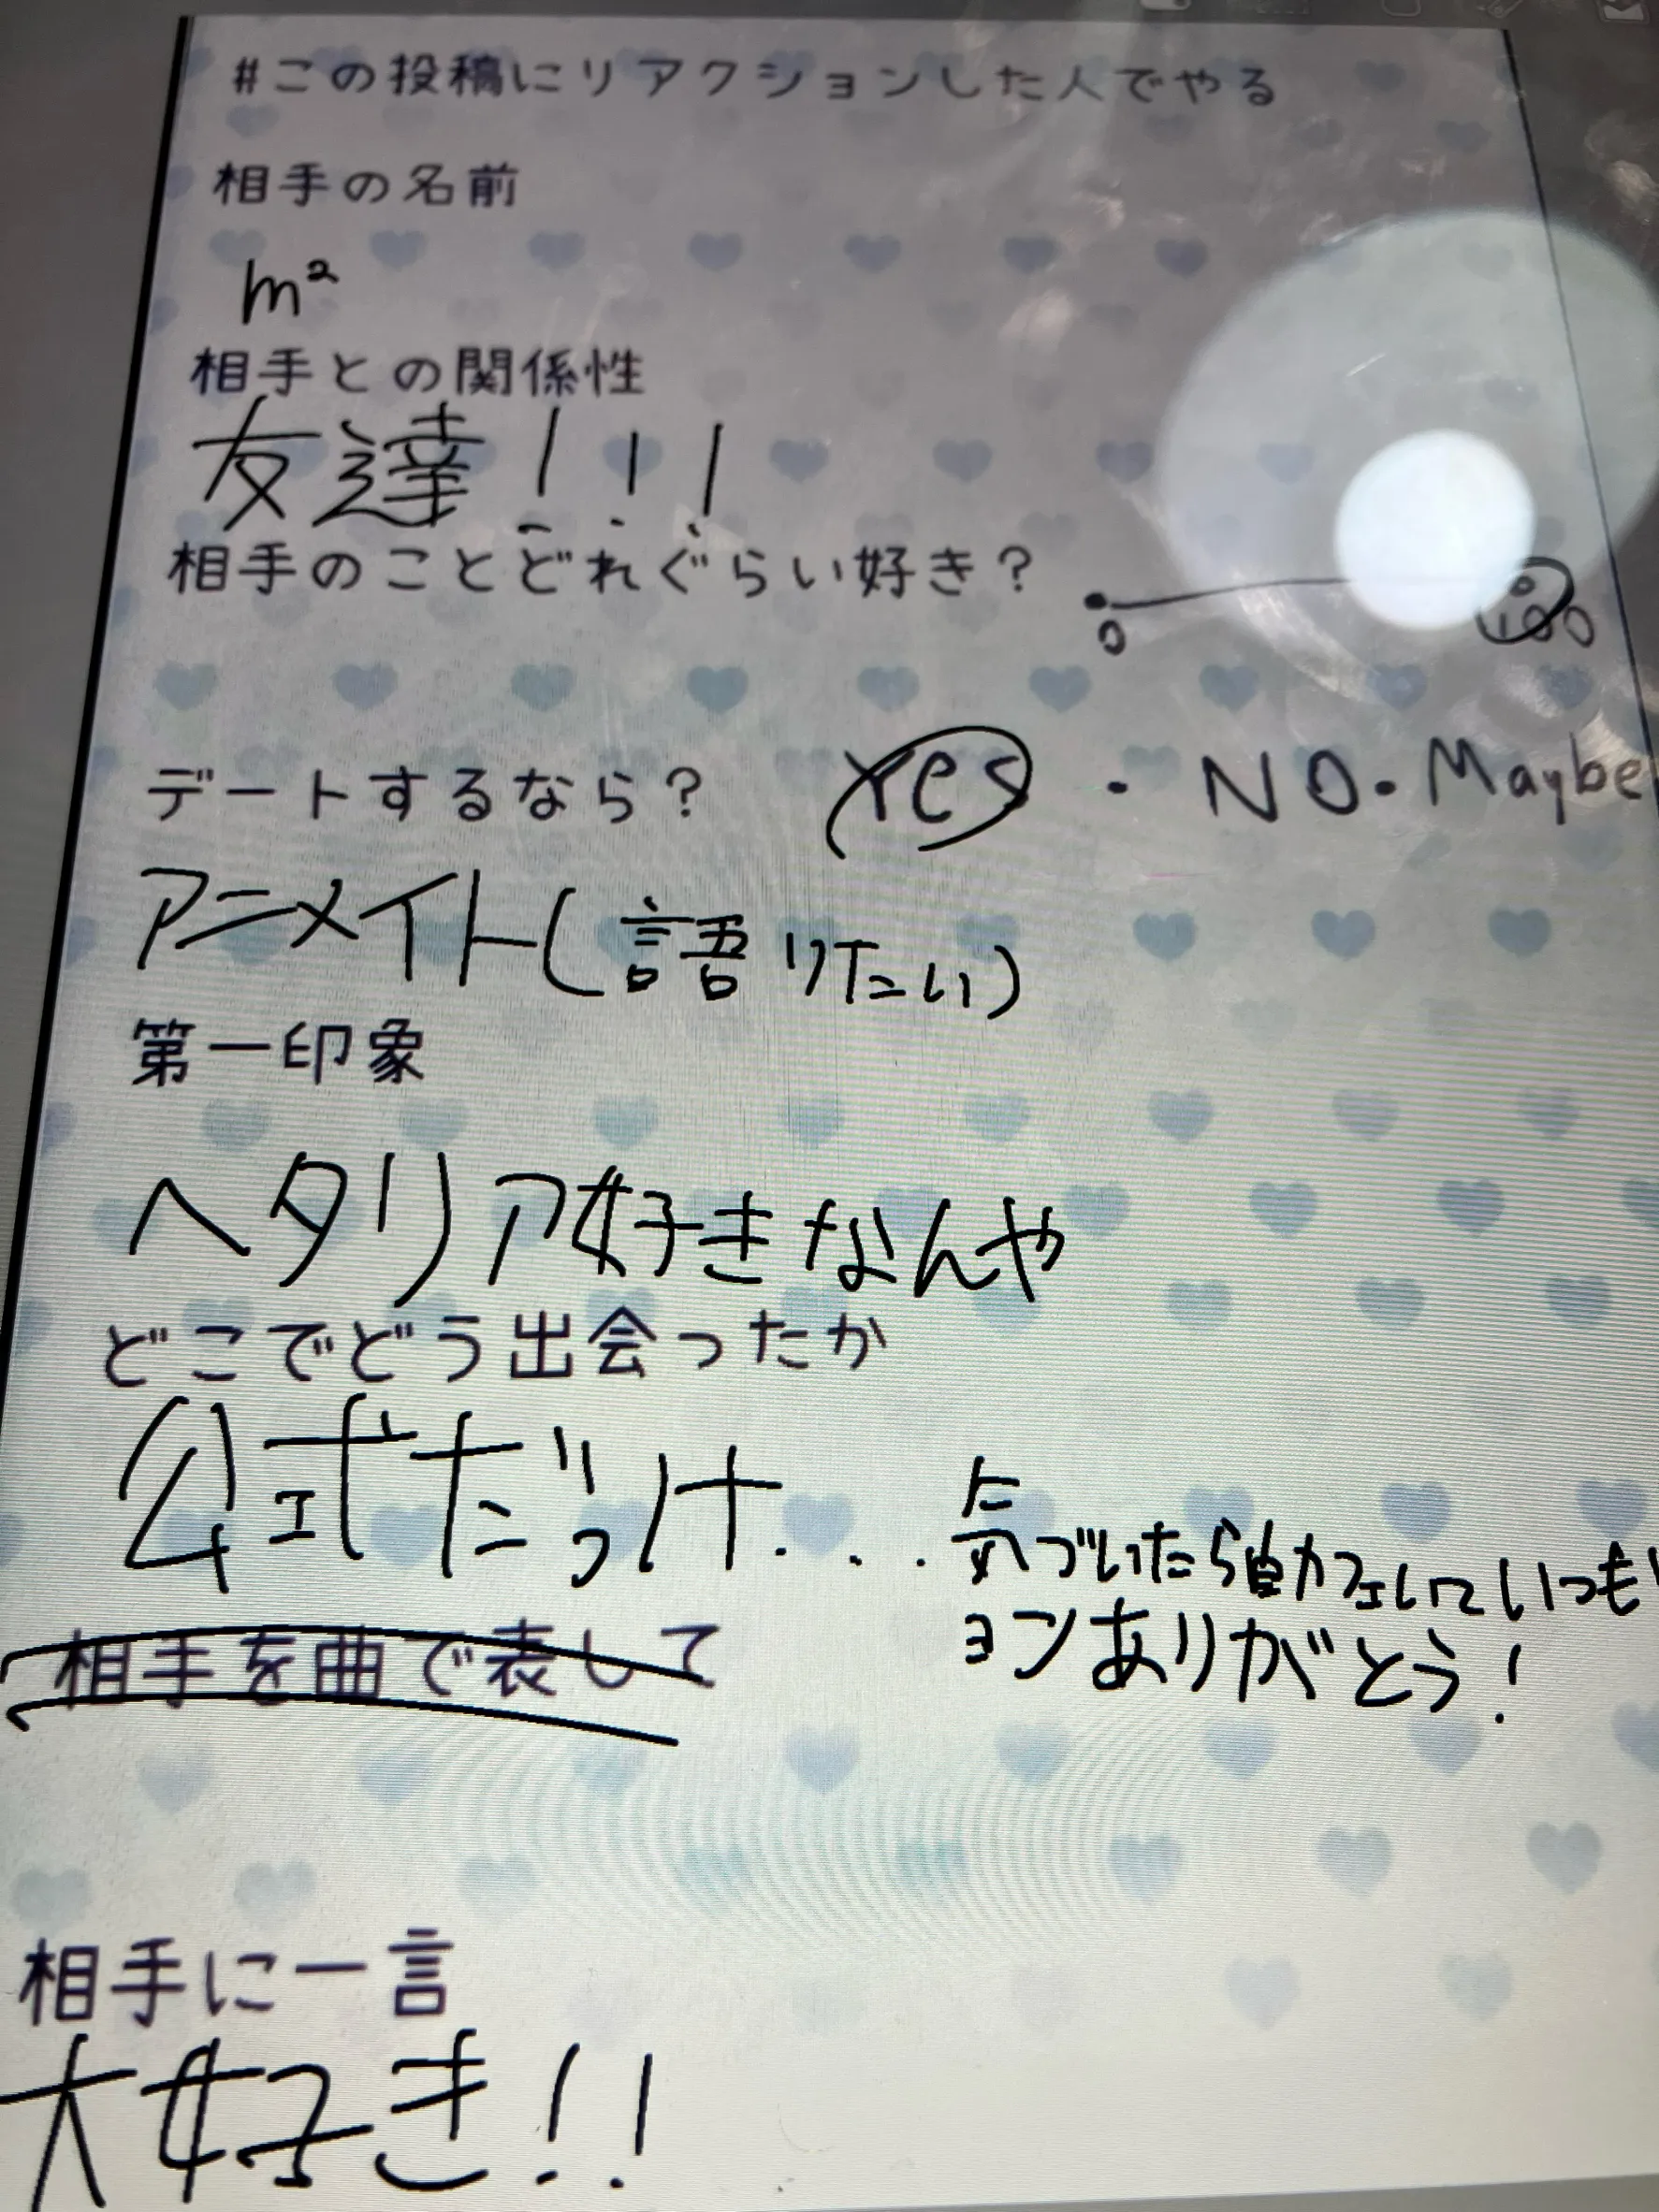 #この投稿にリアクションした人でやる
相手の名前
m²
相手との関係性
友達!!!
相手のことどれぐらい好き?
0 100
デートするなら? Yes・NO・Maybe
アニメイト(語りたい)
第一印象
ヘタリア好きなんや
どこでどう出会ったか
公式だっけ... 気づいたら自カフェしていつも
ヨンありがとう!
相手を曲で表して
相手に一言
大好き!!